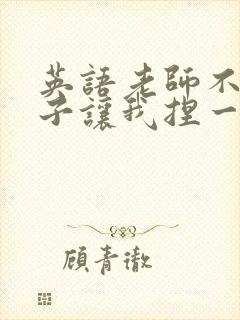 英語老師不
子讓我捏一
顧青澈